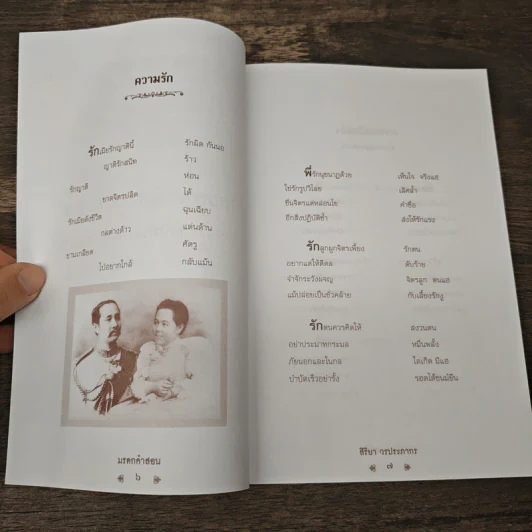 ความรัก
รักเมียรักญาตินี้ รักมิต กันนอ
ญาติรักสนิท ร้าว
ห่อน
รักญาติ ได้
ขาดจิตรปลิด ฉุนเฉียบ
รักเมียดังชีวิต แด่นด้าน
กลต่างด้าว ศัตรู
ยามเกลียด กลับแม้น
ไปอยากใกล้
มรดกคำสอน
๖
พี่รักนุชนาฏด้วย เห็นใจ จริงแฮ
ใช่รักรูปวิไลย เลิศล้ำ
ชื่นจิตรแต่หลอนใข คำชื่อ
อีกสิ่งปฏิบัติซ้ำ ส่งให้รักแรง
รักลูกผูกจิตรเพี้ยง รักตน
อยากแต่ให้ดีดล ดับร้าย
จำจักระวังผจญ จิตรลูก ตนแฮ
แม้ปล่อยเป็นชั่วคล้าย กับเลี้ยงรักงู
รักตนควรคิดให้ สงวนตน
อย่าประมาทกระมล หมิ่นพลั้ง
ภัยนอกและในกล ใดเกิด มีแฮ
บำบัดเร็วอย่ารั้ง รอดได้ยนม์ยืน
สิริมา วรประภากร
๗